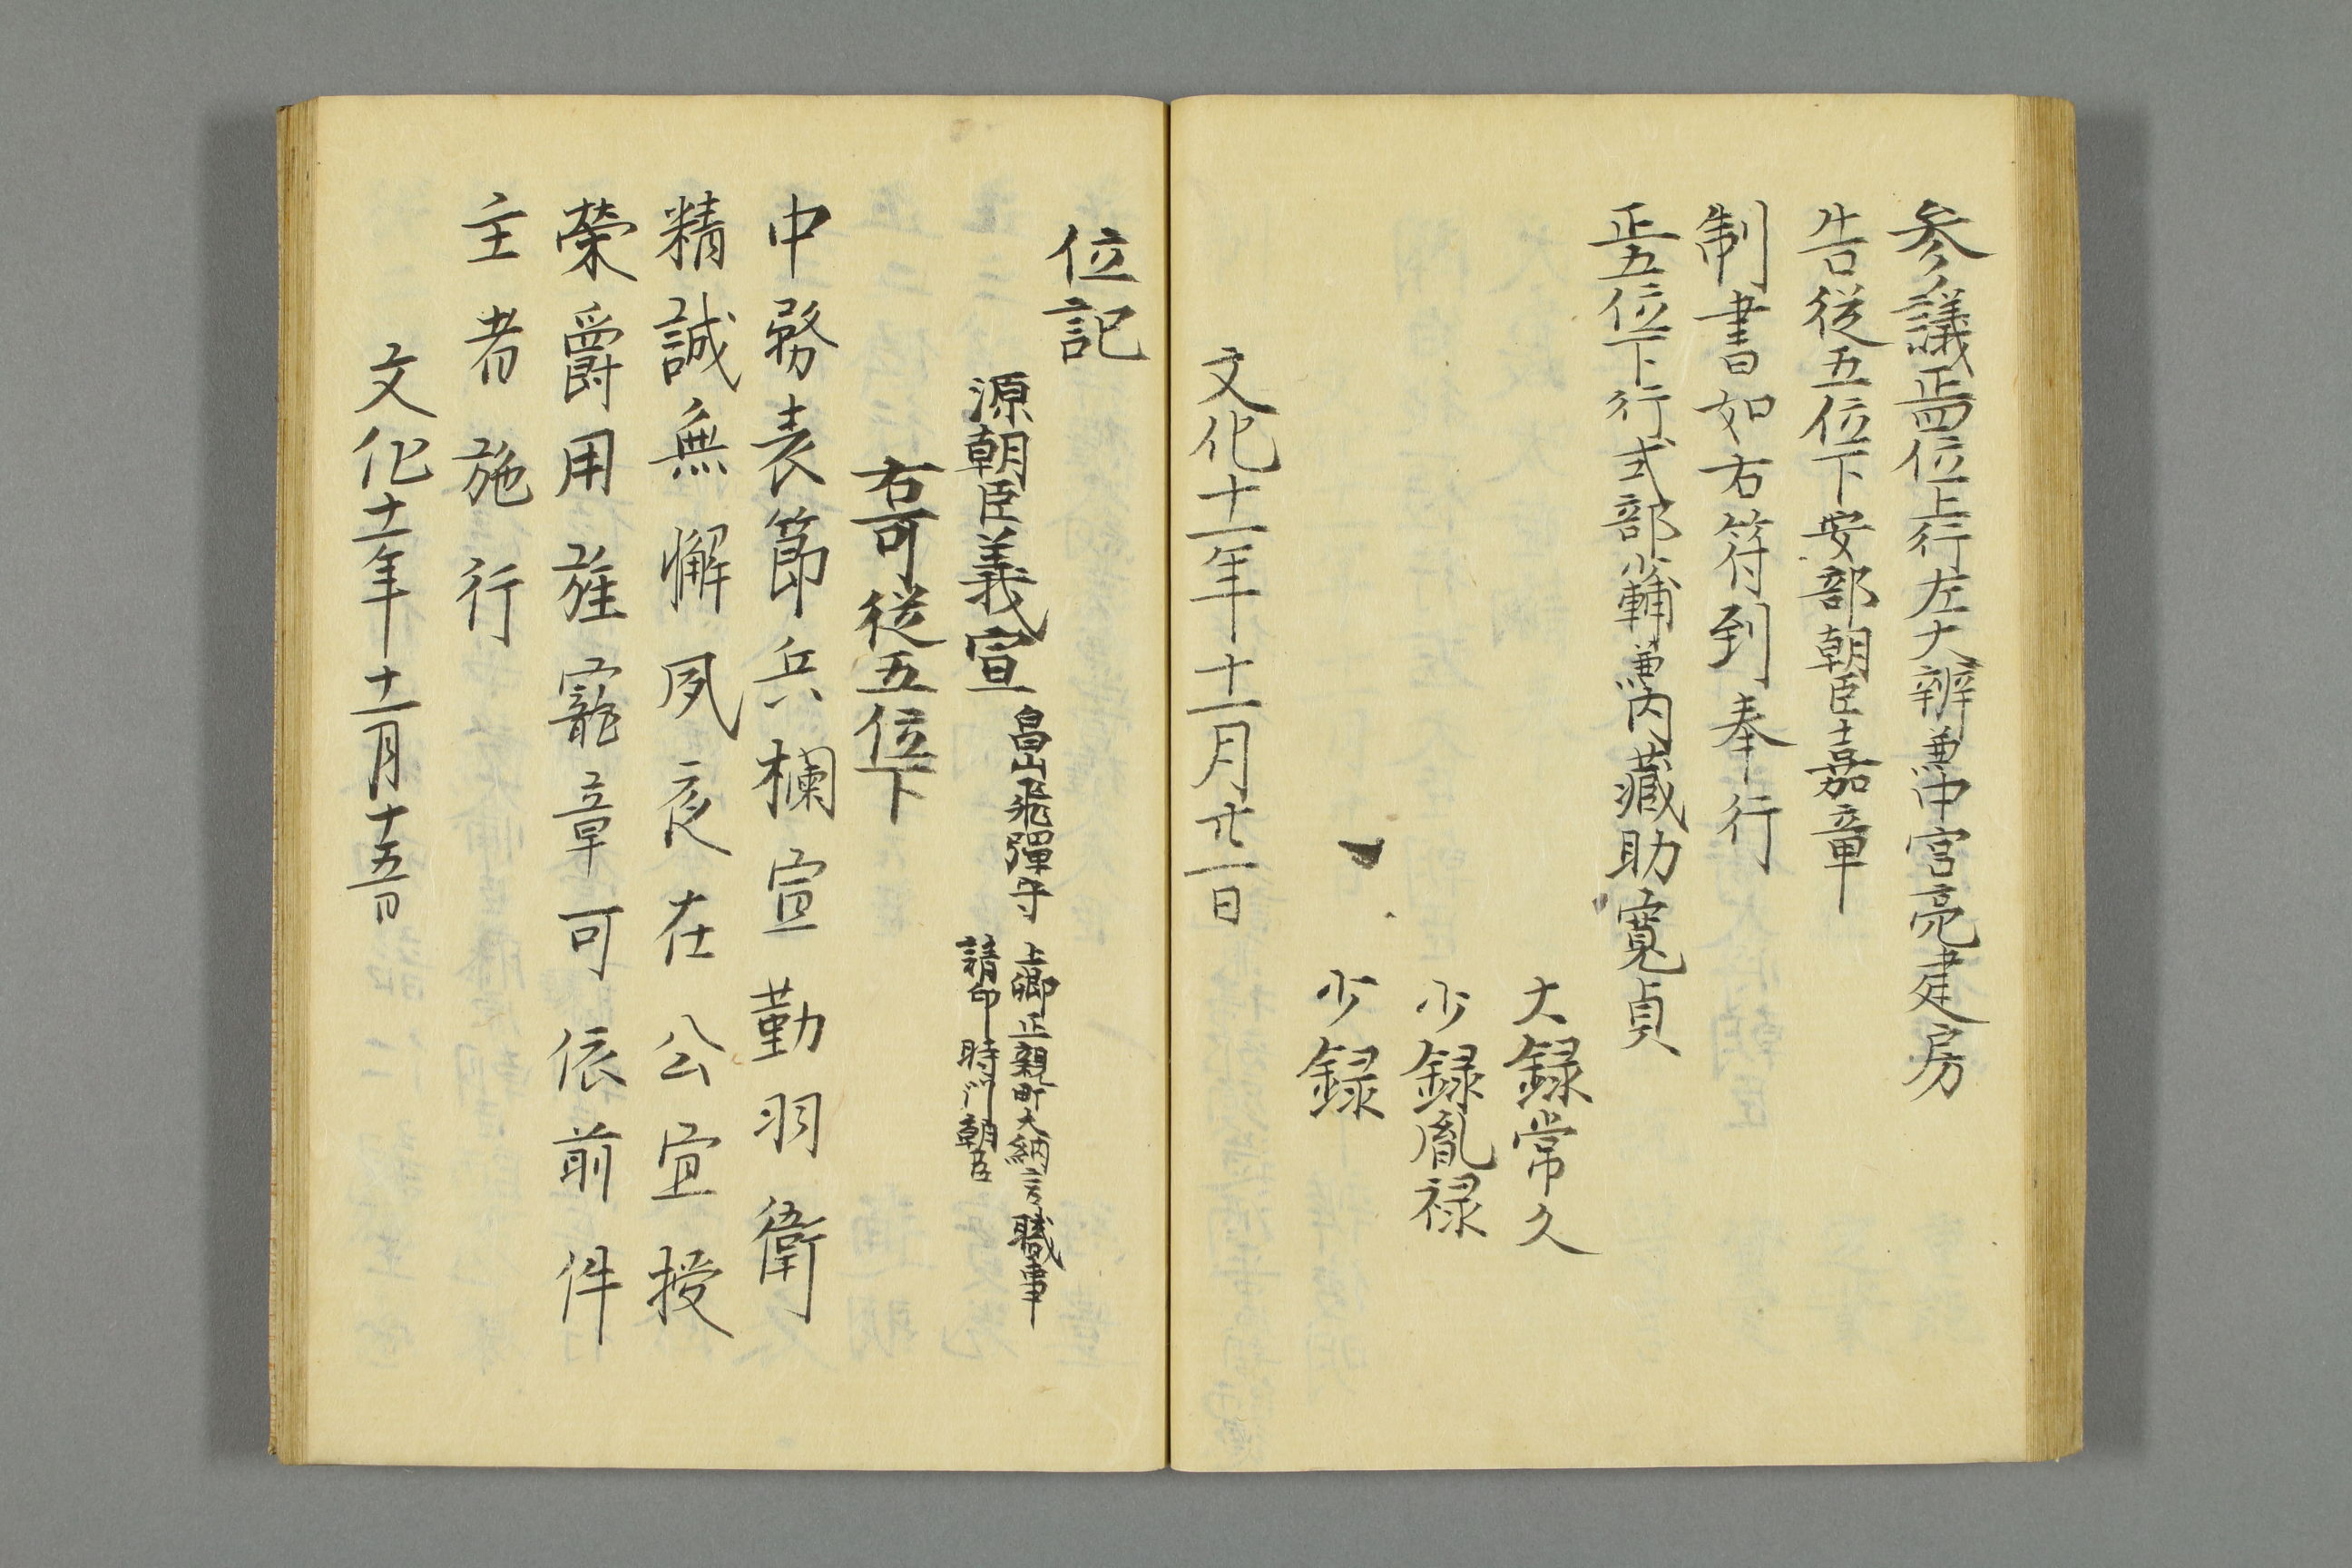 参議正四位上行左大辨兼中宮亮建房
告従五位下安部朝臣嘉章
制書如右符到奉行
正五位下行式部少輔兼内蔵助寛貞
大録常久
少録胤禄
少録
文化十一年十一月廿一日
位記
源朝臣義宣
畠山飛彈守
上卿正親町大納言職事
請印時門朝臣
右可従五位下
中務表節兵欄宣勤羽衛
精誠無懈夙夜在公宜授
榮爵用旌寵章可依前件
主者施行
文化十一年十一月十五日